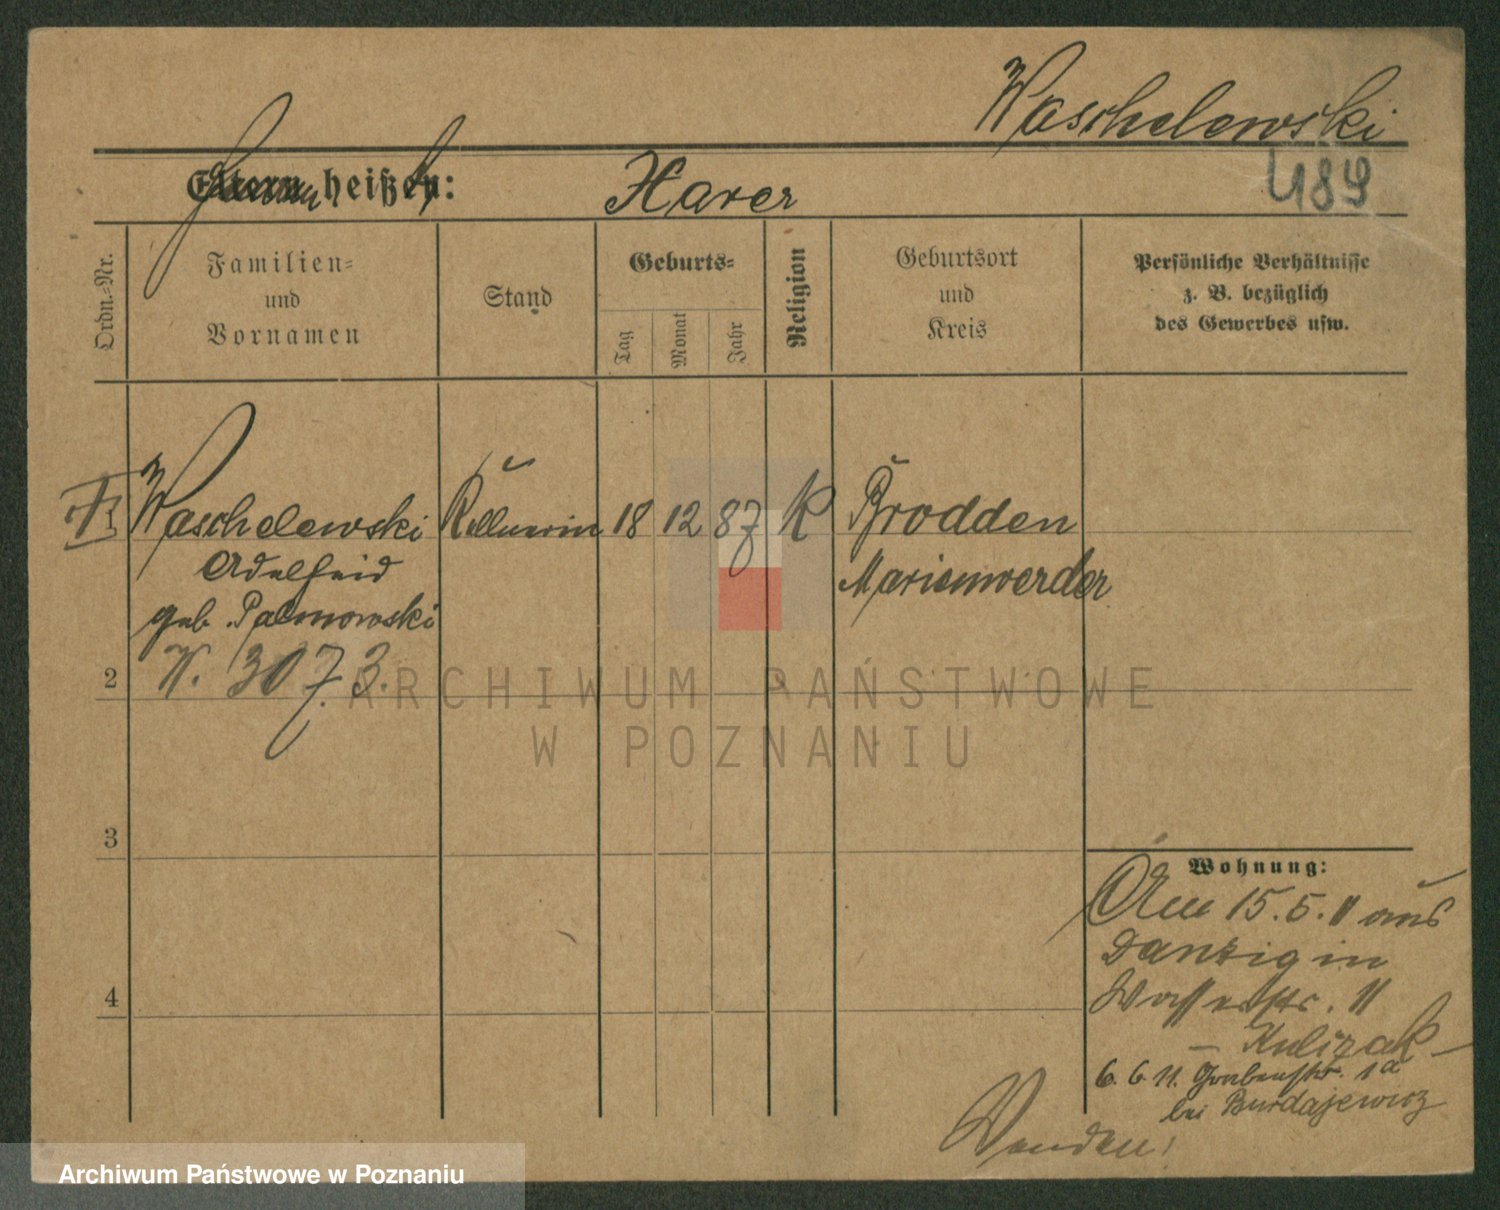 Waschelewski
489
Eltern heißen: Xaver
Ordn.-Nr.
Familien-
und
Vornamen
Stand
Geburts-
Tag
Monat
Jahr
Religion
Geburtsort
und
Kreis
Persönliche Verhältnisse
z. B. bezüglich
des Gewerbes usw.
1 Waschelewski Kellnerin 18 12 87 K Brodden
Adelheid Marienwerder
geb. Palmowski
2 K. 3073.
3
4
Wohnung:
Am 15.5.11 aus
Danzig in
Wasserstr. 11
- Kulizak -
6.6.11. Grabenstr. 1a
bei Burdajewicz
Wenden!
ARCHIWUM PAŃSTWOWE
W POZNANIU
Archiwum Państwowe w Poznaniu